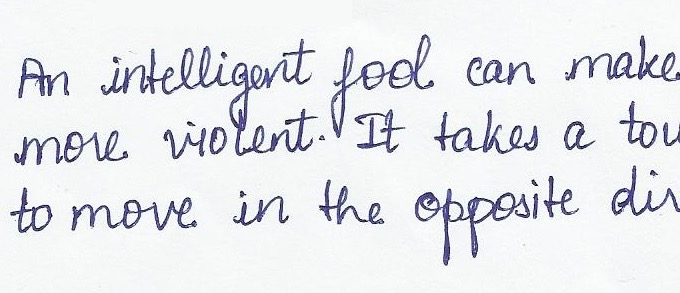 An intelligent fool can make
more violent. It takes a tou
to move in the opposite dir